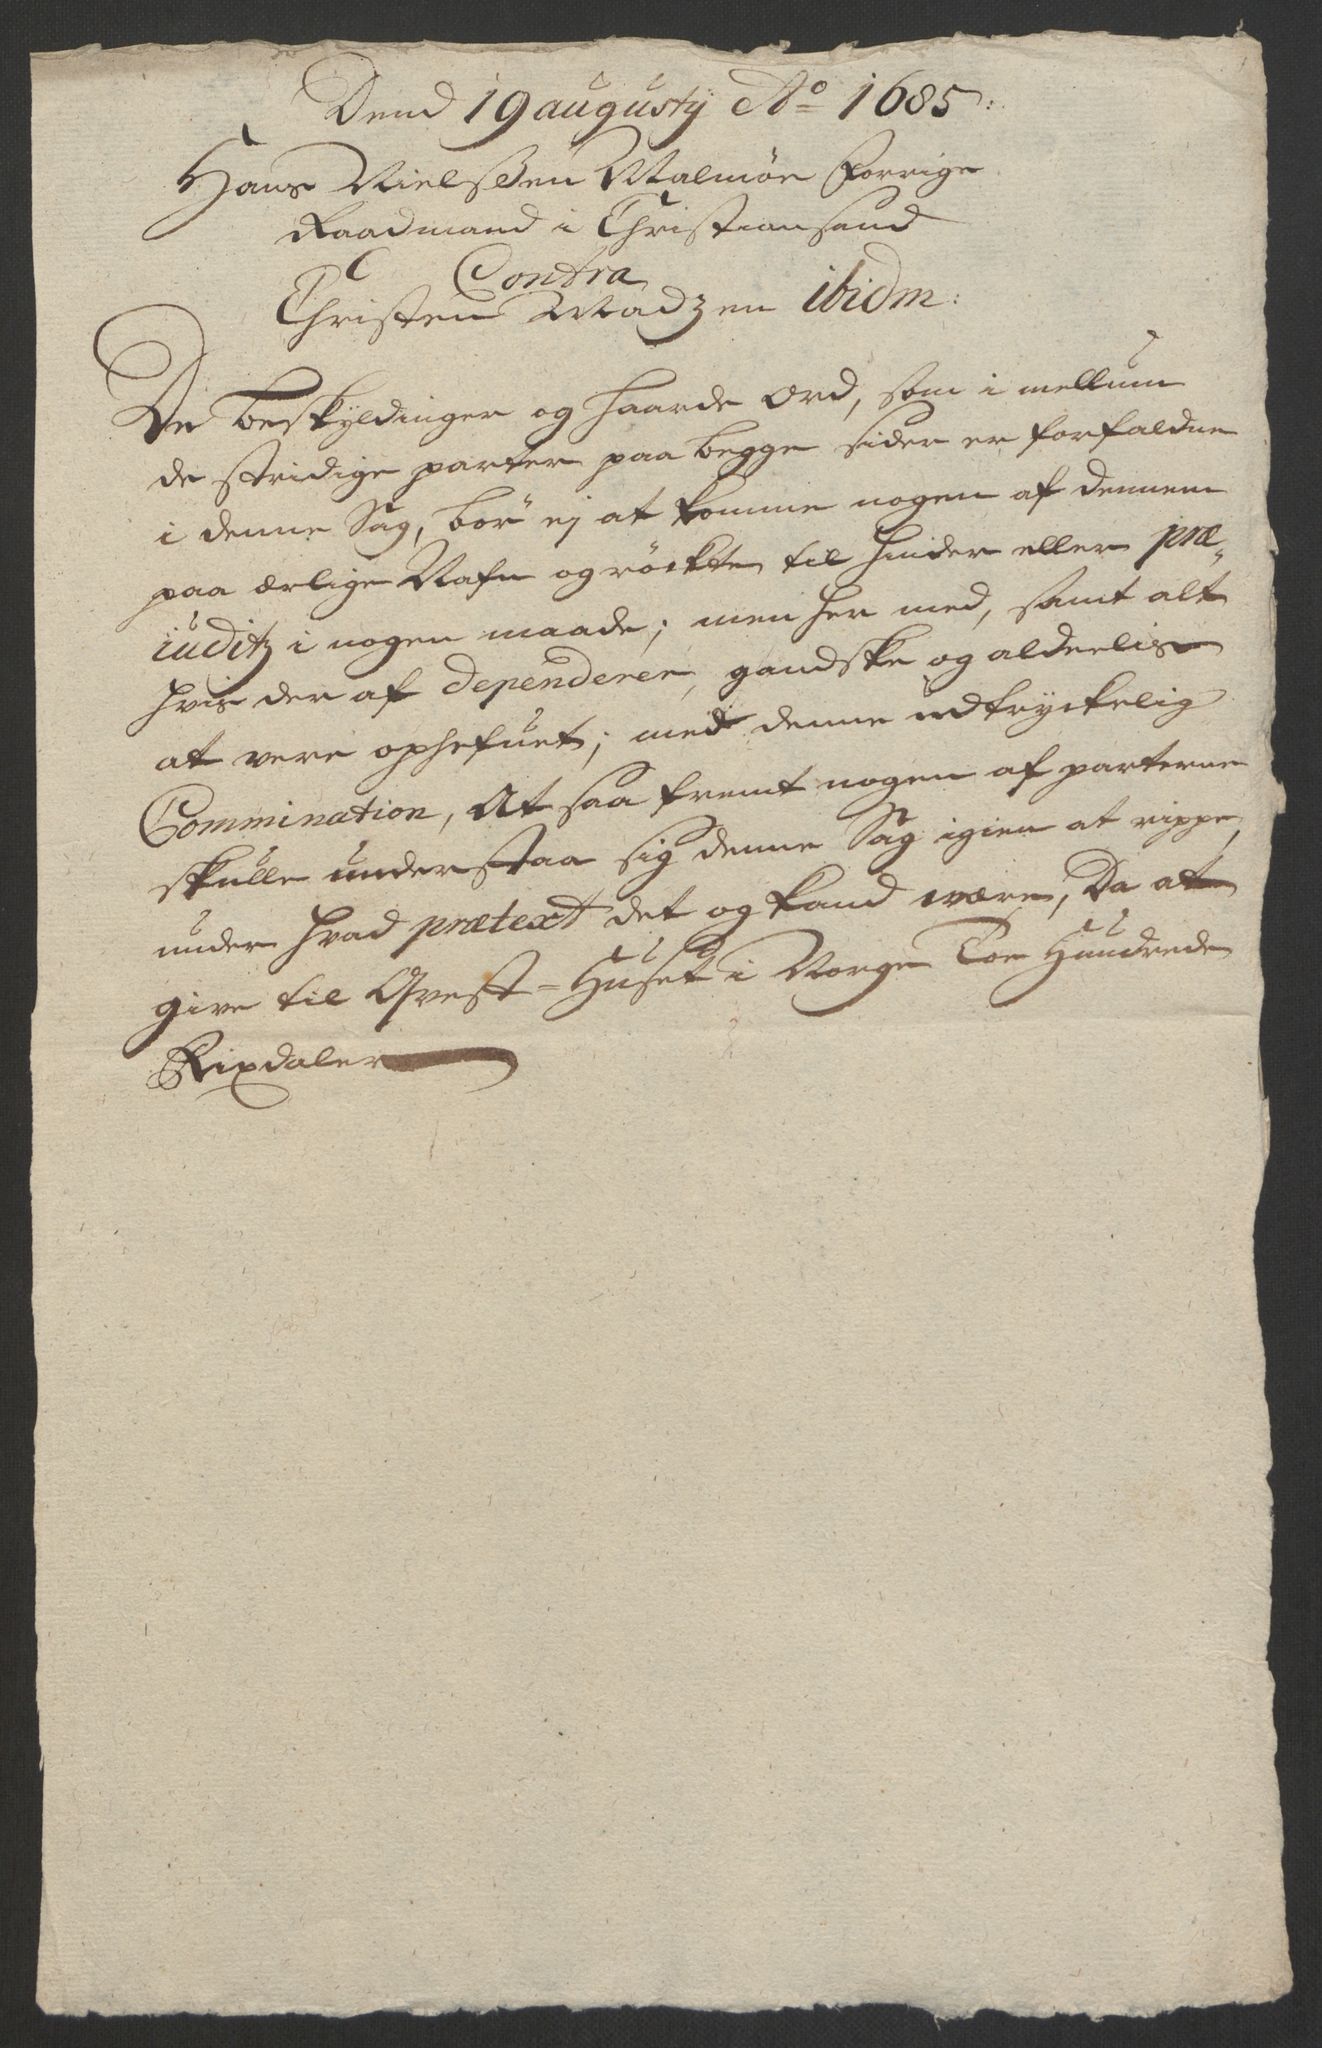 Dend 19 augustij Aº 1685:
Hans Nielsßen Malmöe Forrige
Raadmand i Christiansand
Contra
Christen Madzen ibidm:
De beskyldinger og haarde Ord, som i mellum
de stridige parter paa begge sider er forfaldne
i denne Sag, bör ej at komme nogen af dennem
paa ærlige Nafn og röckte til hinder eller præ-
iuditz i nogen maade; men her med, samt alt
hvis der af dependerer, gandske og alderlis
at vere ophefuet; med denne udtryckelig
Commination, At saa fremt nogen af parterne
skulle understaa sig denne Sag igien at rippe,
under hvad prætext det og kand være, Da at
give til Qvest-Huset i Norge Toe Hundrede
Rixdaler